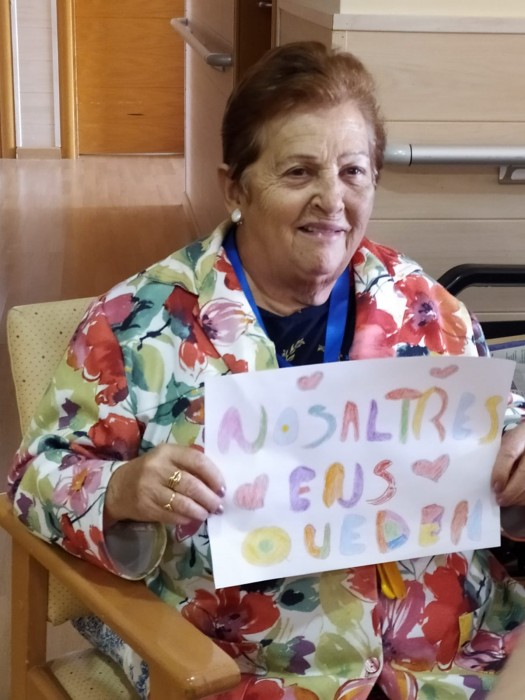 NOSALTRES
ENS
QUEDEM